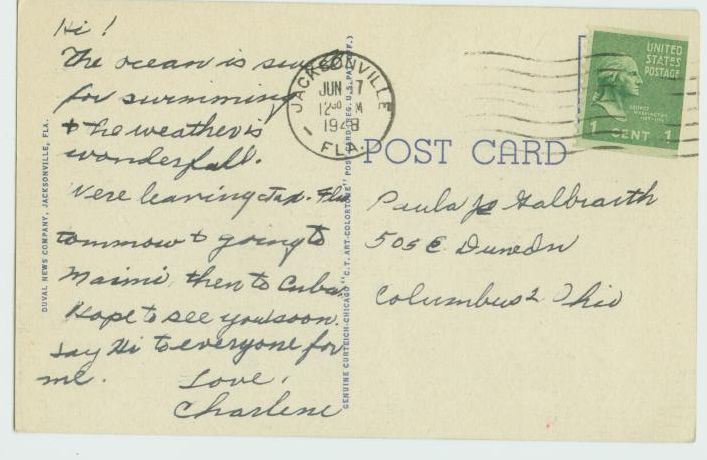 Hi!
The ocean is
for swimming
& the weather is
wonderfull.
Were leaving Jax. Fla
tommow & going to
Maimi, then to Cuba.
Hope to see you soon.
Say Hi to everyone for
me. Love,
Charlene
DUVAL NEWS COMPANY, JACKSONVILLE, FLA.
GENUINE CURTEICH-CHICAGO "C.T. ART-COLORTONE" POST CARD (REG. U.S. PAT. OFF.)
JACKSONVILLE
JUN 7
12
1948
FLA.
UNITED
STATES
POSTAGE
GEORGE
WASHINGTON
1 CENT 1
POST CARD
Paula Galbraith
505 E. Dunedin
Columbus 2 Ohio